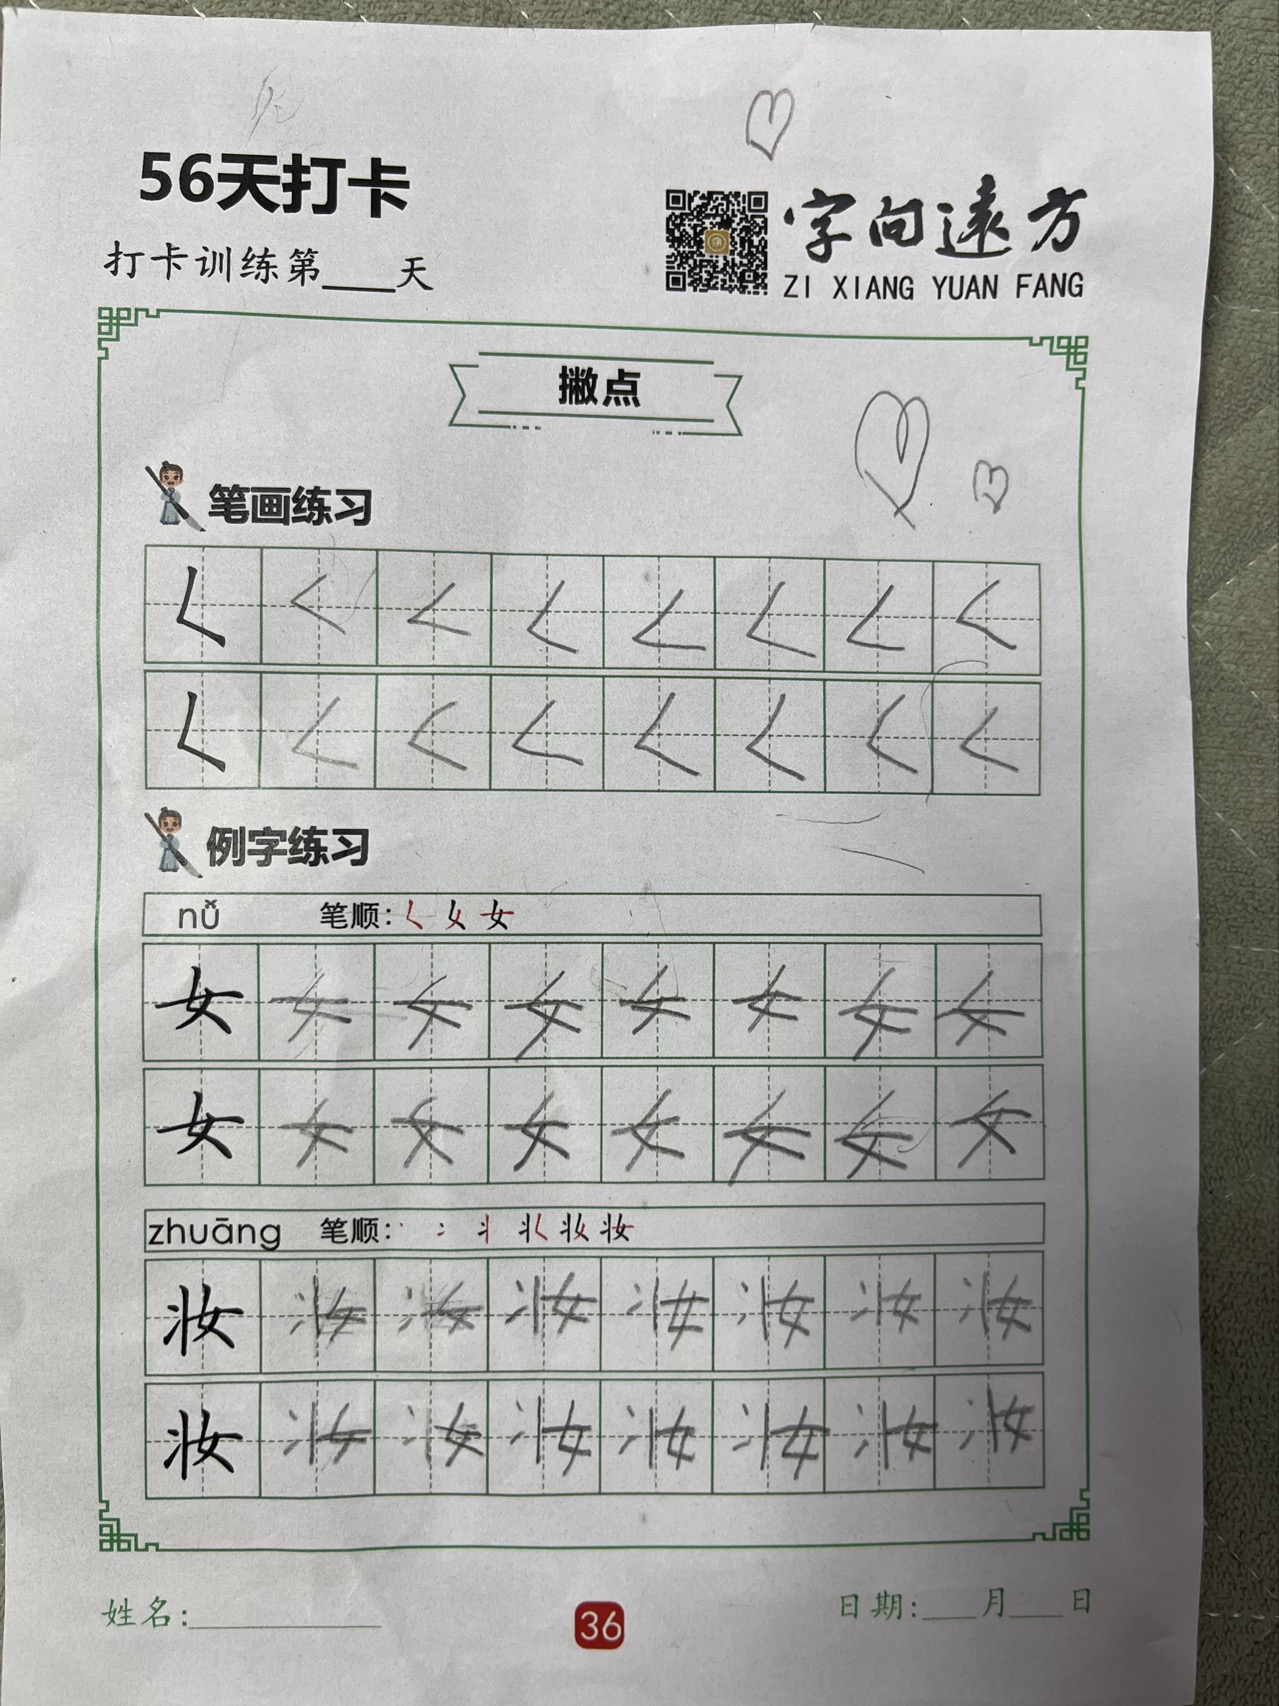 56天打卡
打卡训练第____天
字向远方
ZI XIANG YUAN FANG
撇点
笔画练习
𡿨 𡿨 𡿨 𡿨 𡿨 𡿨 𡿨 𡿨
𡿨 𡿨 𡿨 𡿨 𡿨 𡿨 𡿨 𡿨
例字练习
nǚ 笔顺: 𡿨 女
女 女 女 女 女 女 女 女
女 女 女 女 女 女 女 女
zhuāng 笔顺: 丶 冫 丬 妆
妆 妆 妆 妆 妆 妆 妆 妆
妆 妆 妆 妆 妆 妆 妆 妆
姓名:____________ 日期:____月____日
36